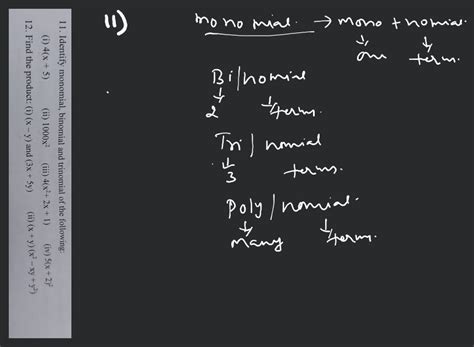 11. Identify monomial, binomial and trinomial of the following:
(i) 4(x + 5) (ii) 1000x² (iii) 4(x² + 2x + 1) (iv) 5(x + 2)²
12. Find the product: (i) (x − y) and (3x + 5y) (ii) (x + y) (x² − xy + y²)
11) monomial. → mono + nomial
↓ one ↓ term.
Bi/nomial
↓ 2 ↓ terms.
Tri/nomial
↓ 3 terms.
Poly/nomial.
↓ many ↓ terms.